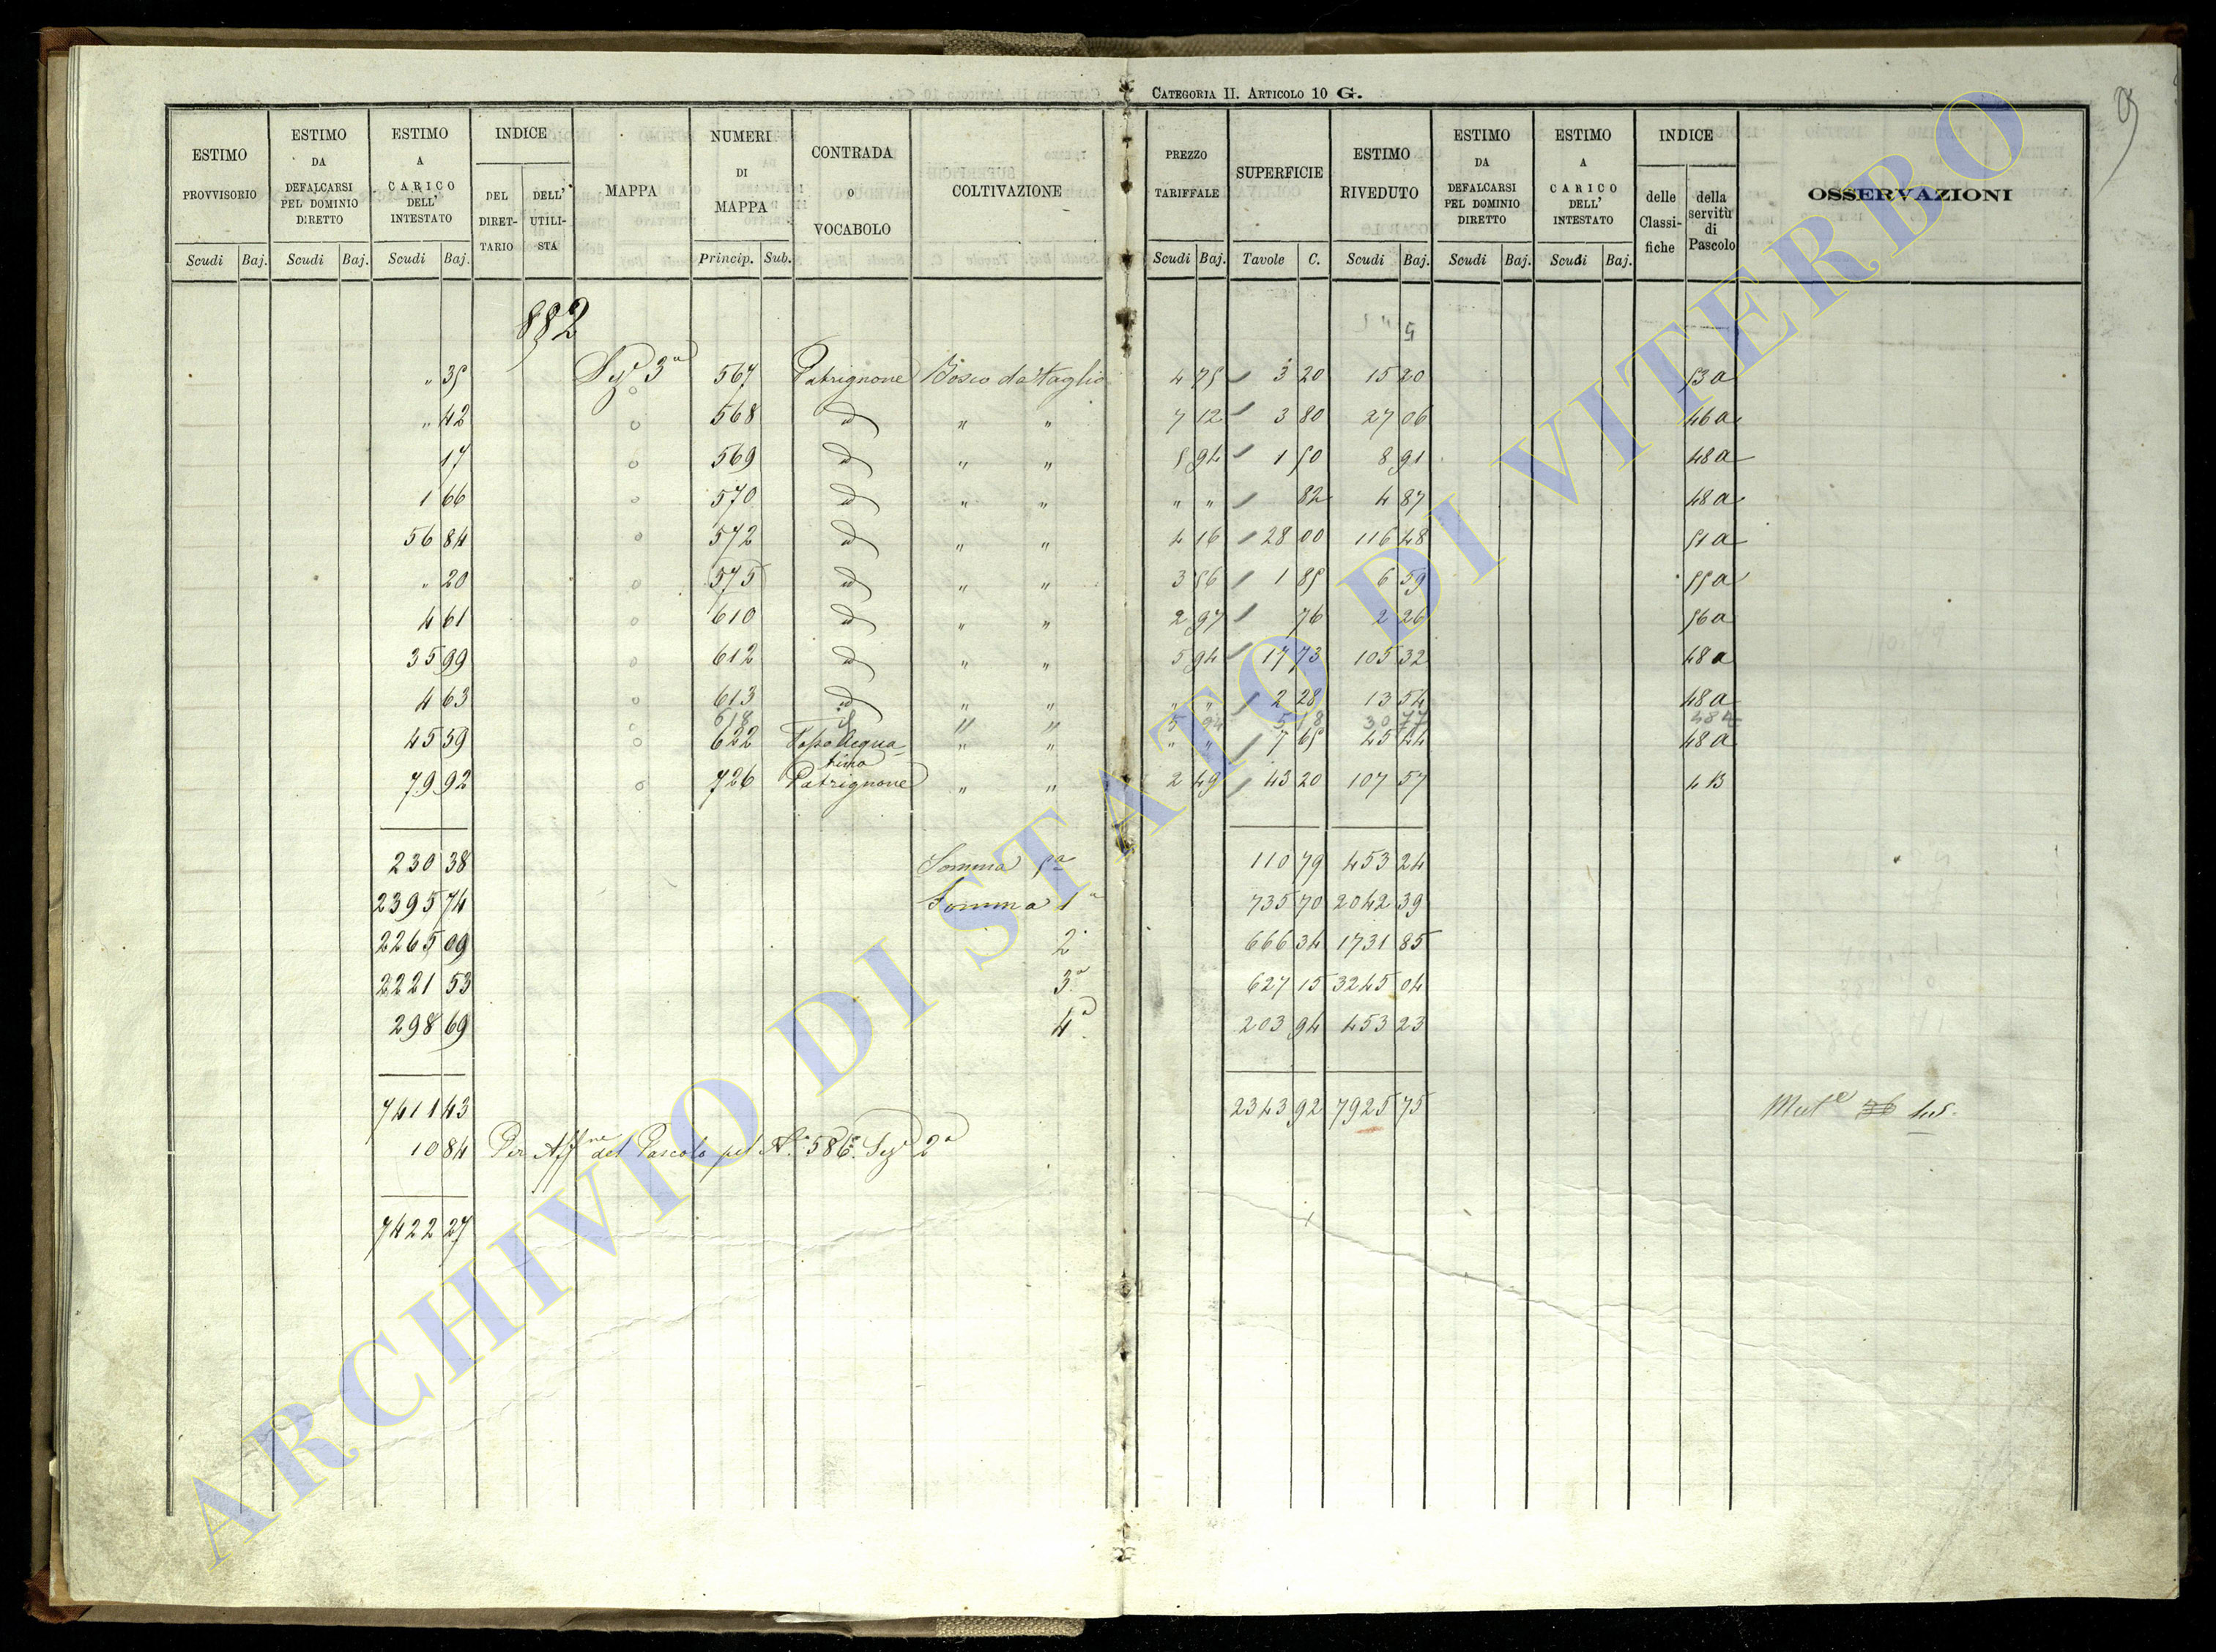 CATEGORIA II. ARTICOLO 10 G.
9
ESTIMO PROVVISORIO
ESTIMO DA DEFALCARSI PEL DOMINIO DIRETTO
ESTIMO A CARICO DELL' INTESTATO
INDICE
DEL DIRET-TARIO
DELL' UTILI-STA
MAPPA
NUMERI DI MAPPA
CONTRADA O VOCABOLO
COLTIVAZIONE
PREZZO TARIFFALE
SUPERFICIE
ESTIMO RIVEDUTO
ESTIMO DA DEFALCARSI PEL DOMINIO DIRETTO
ESTIMO A CARICO DELL' INTESTATO
INDICE
delle Classi-fiche
della servitù di Pascolo
OSSERVAZIONI
Scudi Baj. Scudi Baj. Scudi Baj. Princip. Sub. Scudi Baj. Tavole C. Scudi Baj. Scudi Baj. Scudi Baj.
882
" 35 Seze 3a 567 Patrignone Bosco da taglio 4 75 3 20 15 20 53 a
" 42 568 id " " 7 12 3 80 27 06 46 a
17 569 id " " 5 94 1 50 8 91 48 a
1 66 570 id " " " " 82 4 87 48 a
56 84 572 id " " 4 16 28 00 116 48 51 a
" 20 575 id " " 3 56 1 85 6 59 55 a
4 61 610 id " " 2 97 76 2 26 56 a
35 99 612 id " " 5 94 17 73 105 32 48 a
4 63 613 id " " " " 2 28 13 54 48 a
618 id " " 5 94 5 18 30 77 48 a
45 59 622 " " " " 7 65 45 44 48 a
79 92 726 Patrignone " " 2 49 43 20 107 57 4 B
230 38 Somma 5a 110 79 453 24
2395 74 Somma 1a 735 70 2042 39
2265 09 2a 666 34 1731 85
2221 53 3a 627 15 3245 04
298 69 4a 203 94 453 23
7411 43 2343 92 7925 75
10 84 Per Affne del Pascolo pel No 586. Seze 2a
7422 27
ARCHIVIO DI STATO DI VITERBO